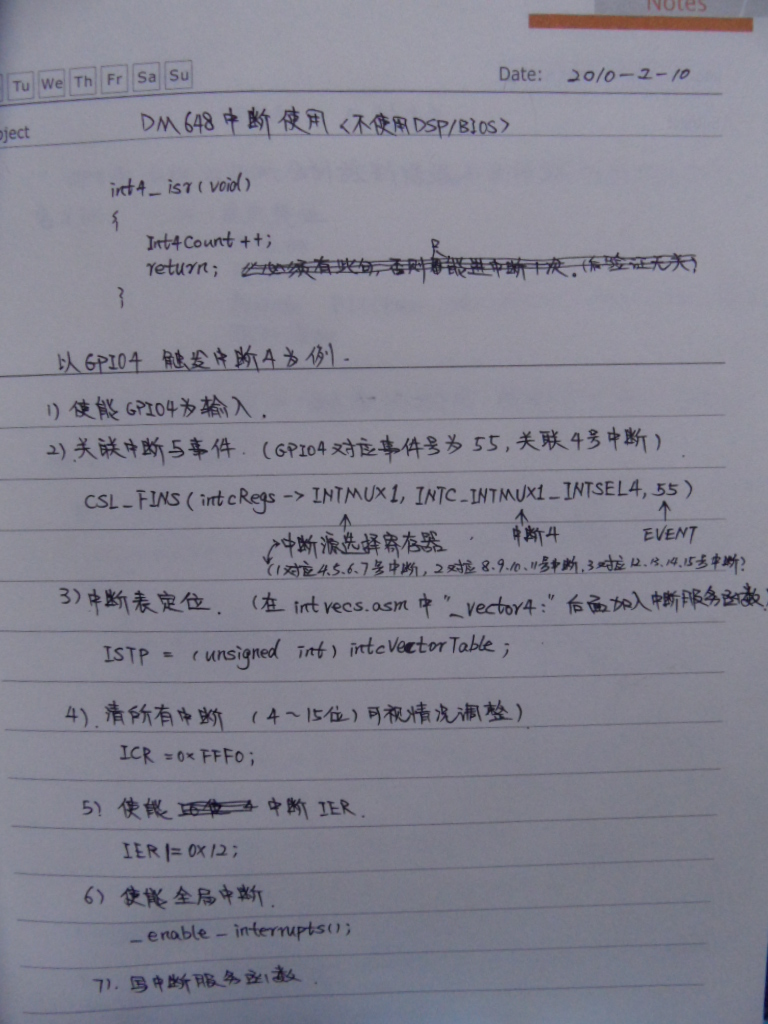 Notes
Tu We Th Fr Sa Su
Date: 2010-2-10
ject
DM648中断使用<不使用DSP/BIOS>
int4_isr(void)
{
Int4Count++;
return; //必须有此句,否则只能进中断1次.(后验证无关)
}
以GPIO4 触发中断4为例.
1) 使能GPIO4为输入.
2) 关联中断与事件. (GPIO4对应事件号为55,关联4号中断)
CSL_FINS(intcRegs->INTMUX1, INTC_INTMUX1_INTSEL4, 55)
中断源选择寄存器 中断4 EVENT
(1对应4.5.6.7号中断,2对应8.9.10.11号中断,3对应12.13.14.15号中断)
3) 中断表定位. (在intvecs.asm中"_vector4:"后面加入中断服务函数)
ISTP = (unsigned int) intcVectorTable;
4). 清所有中断 (4~15位)可视情况调整)
ICR = 0xFFF0;
5) 使能 中断IER.
IER |= 0x12;
6) 使能全局中断.
_enable_interrupts();
7). 写中断服务函数.